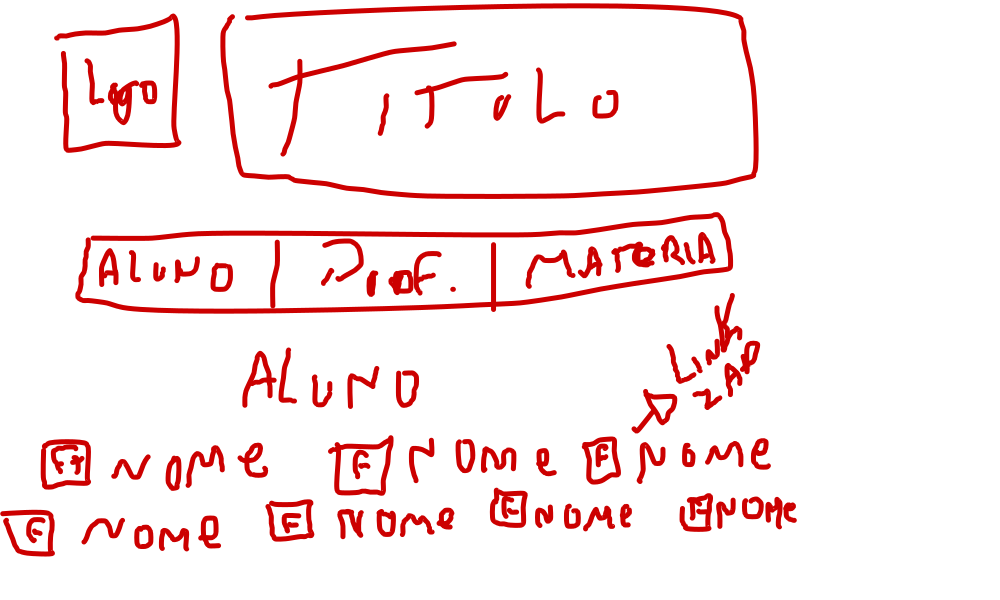 Logo TITULO
ALUNO PROF. MATERIA
LINK
ZAP
ALUNO
Ft NOME F NOME F NOME
F NOME F NOME F NOME F NOME